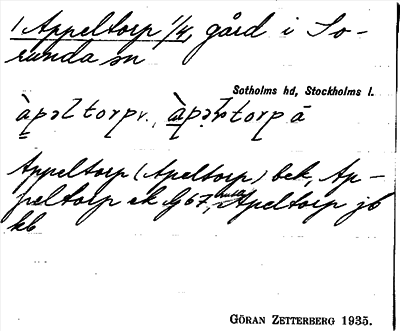 1 Appeltorp 1/4, gård i So-
runda sn
Sotholms hd, Stockholms l.
àpəltorpv., torp ä
Appeltorp (Apeltorp) bek, Ap-
peltorp ek G67, Apeltorp jb
kb
GÖRAN ZETTERBERG 1935.